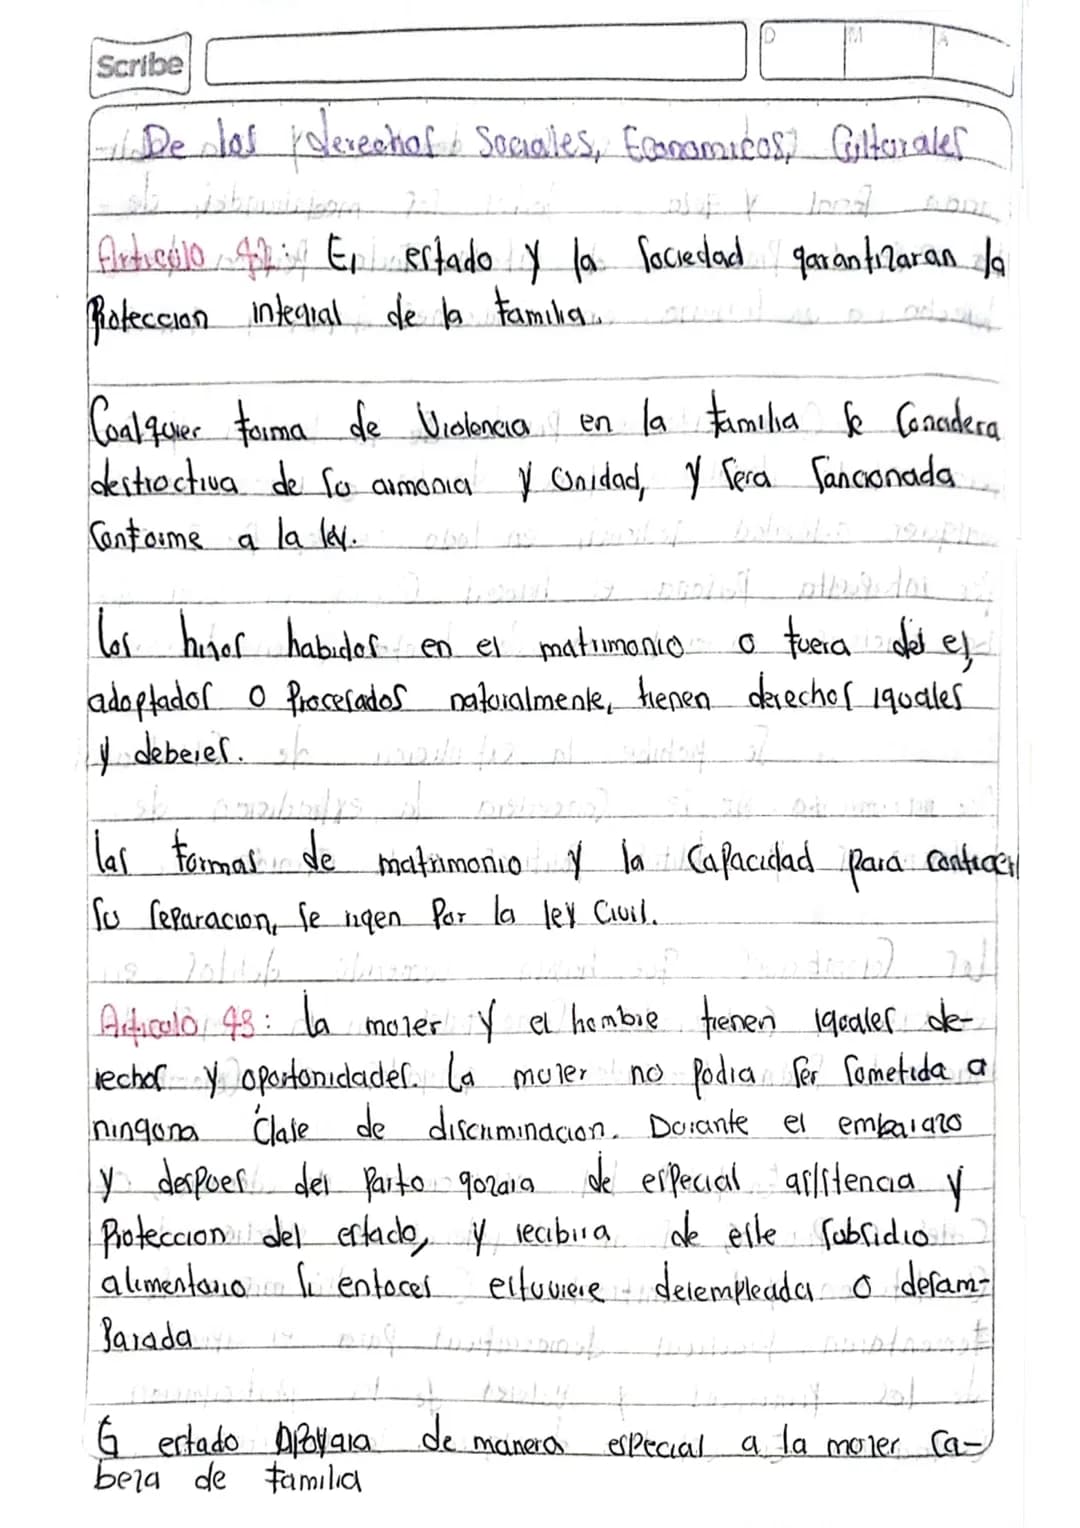 Scribe
D M A
De los derechos Sociales, Economicos, Culturales
Articulo 42: El estado y la Sociedad garantizaran la
Proteccion integral de la familia.
Cualquier forma de Violencia en la familia se Considera
destructiva de su armonia y Unidad, y Sera Sancionada
Conforme a la ley.
los hijos habidos en el matrimonio o fuera del el
adoptados o Procesados naturalmente, tienen derechos iguales
y deberes.
las formas de matrimonio y la Capacidad para contraer
su separacion, se rigen Por la ley Civil.
Articulo 43: la mujer y el hombre tienen iguales de-
rechos y oportunidades. La mujer no Podia Ser Sometida a
ninguna Clase de discriminacion. Durante el embarazo
y despues del Parto gozara de especial asistencia y
Proteccion del estado, y recibira de este Subsidio
alimentario Si entoces estuviere desempleada o desam-
Parada
El estado Apoyara de manera especial a la mujer Ca-
beza de familia